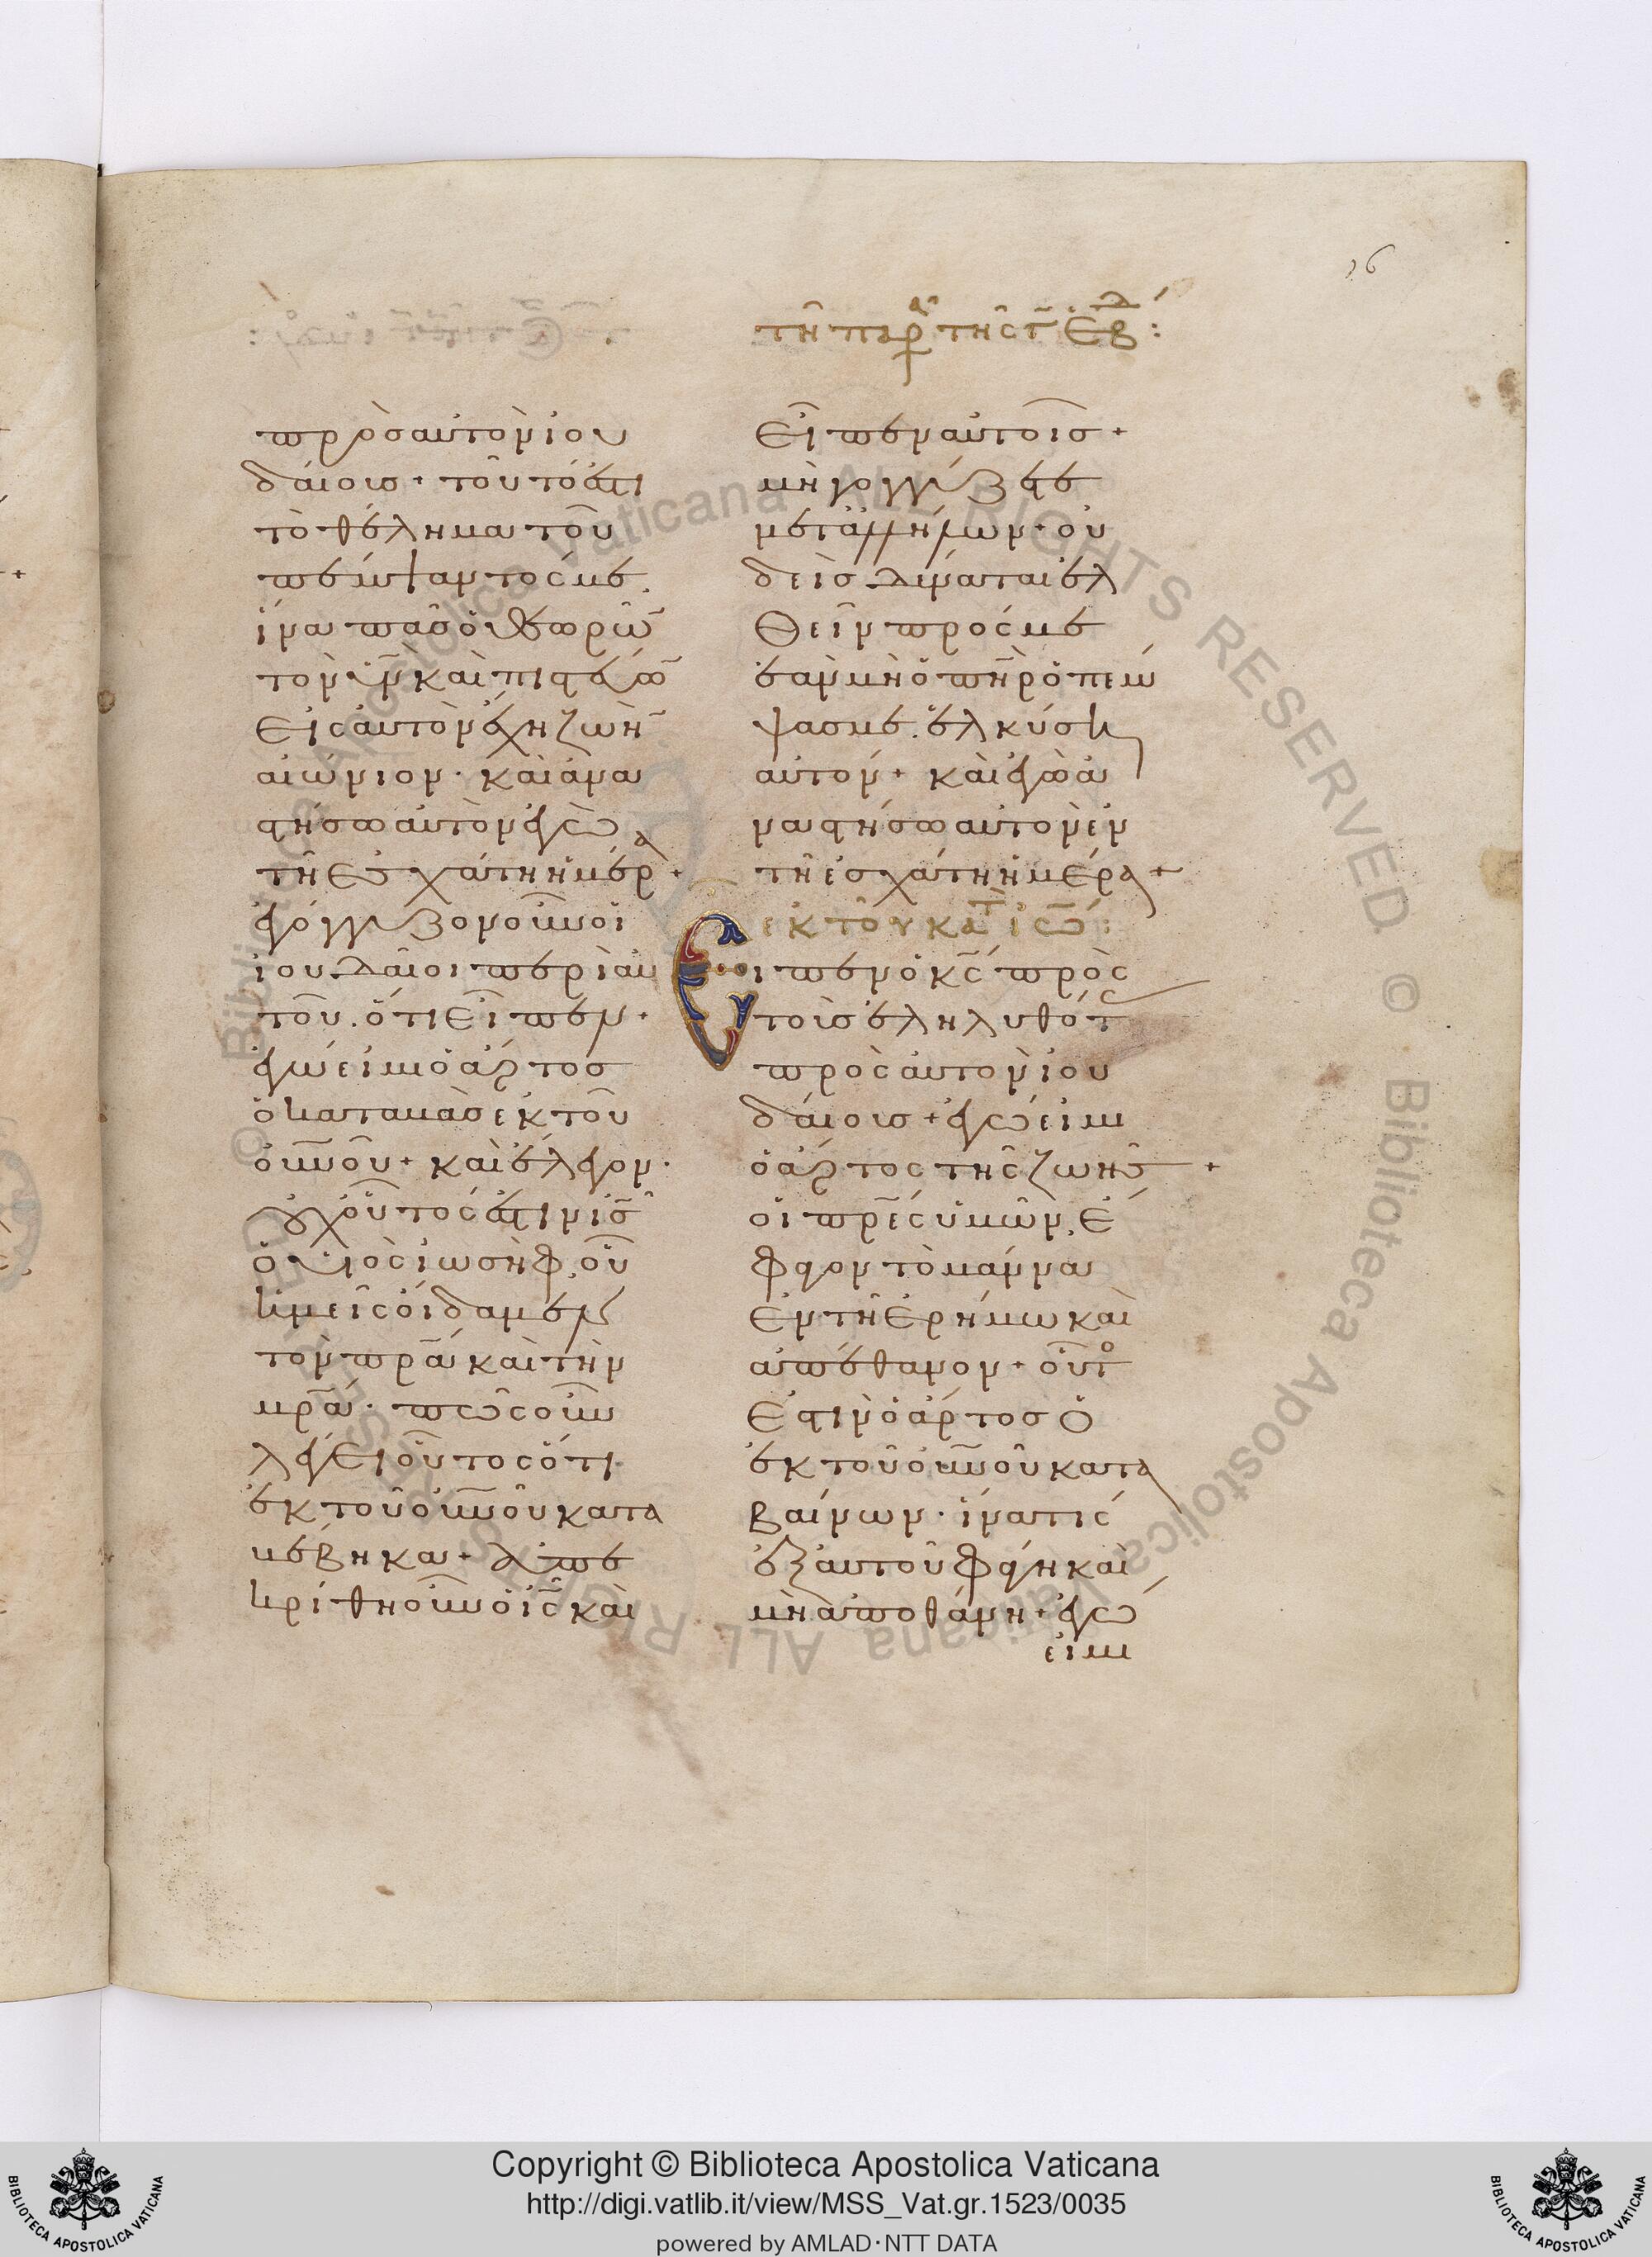 16
τῆ παρ τῆς γ ἑβδ :
πρὸς αὐτὸν ἰου
δαίους + τοῦτό ἐστι
τὸ θέλημα τοῦ
πέμψαντός με.
ἵνα πᾶς ὁ θεωρῶν
τὸν υν καὶ πιστεύων
εἰς αὐτὸν ἔχη ζωὴν
αἰώνιον · καὶ ἀνα
στήσω αὐτὸν ἐγὼ
τῆ ἐσχάτη ἡμέρα +
ἐγόγγυζον οὖν οἱ
ἰουδαῖοι περὶ αὐ
τοῦ. ὅτι εἶπεν +
ἐγώ εἰμι ὁ ἄρτος
ὁ καταβὰς ἐκ τοῦ
οὐνοῦ + καὶ ἔλεγον ·
οὐχ οὗτός ἐστιν ις
ὁ υἱὸς ἰωσὴφ, οὗ
ἡμεῖς οἴδαμεν
τὸν πρα καὶ τὴν
μρα · πῶς οὖν
λέγει οὗτος ὅτι
ἐκ τοῦ οὐνοῦ κατα
βέβηκα + ἀπε
κρίθη οὖν ὁ ις καὶ
εἶπεν αὐτοῖς +
μὴ γογγύζετε
μετ' ἀλλήλων + οὐ
δεὶς δύναται ἐλ
θεῖν πρός με
ἐὰν μὴ ὁ πηρ ὁ πέμ
ψας με. ἑλκύση
αὐτόν + καὶ ἐγὼ ἀ
ναστήσω αὐτὸν ἐν
τῆ ἐσχάτη ἡμέρα +
ἐκ τοῦ κατ ἰω :
Εἶπεν ὁ κς πρὸς
τοὺς ἐληλυθότ
πρὸς αὐτὸν ἰου
δαίους + ἐγώ εἰμι
ὁ ἄρτος τῆς ζωῆς +
οἱ πρες ὑμῶν, ἔ
φαγον τὸ μάννα
ἐν τῆ ἐρήμω καὶ
ἀπέθανον + οὗτο
ἐστιν ὁ ἄρτος ὁ
ἐκ τοῦ οὐνοῦ κατα
βαίνων · ἵνα τις
ἐξ αὐτοῦ φάγη καὶ
μὴ ἀποθάνη + ἐγώ
εἰμι
© Biblioteca Apostolica Vaticana ALL RIGHTS RESERVED
Copyright © Biblioteca Apostolica Vaticana
http://digi.vatlib.it/view/MSS_Vat.gr.1523/0035
powered by AMLAD·NTT DATA
BIBLIOTECA APOSTOLICA VATICANA
BIBLIOTECA APOSTOLICA VATICANA